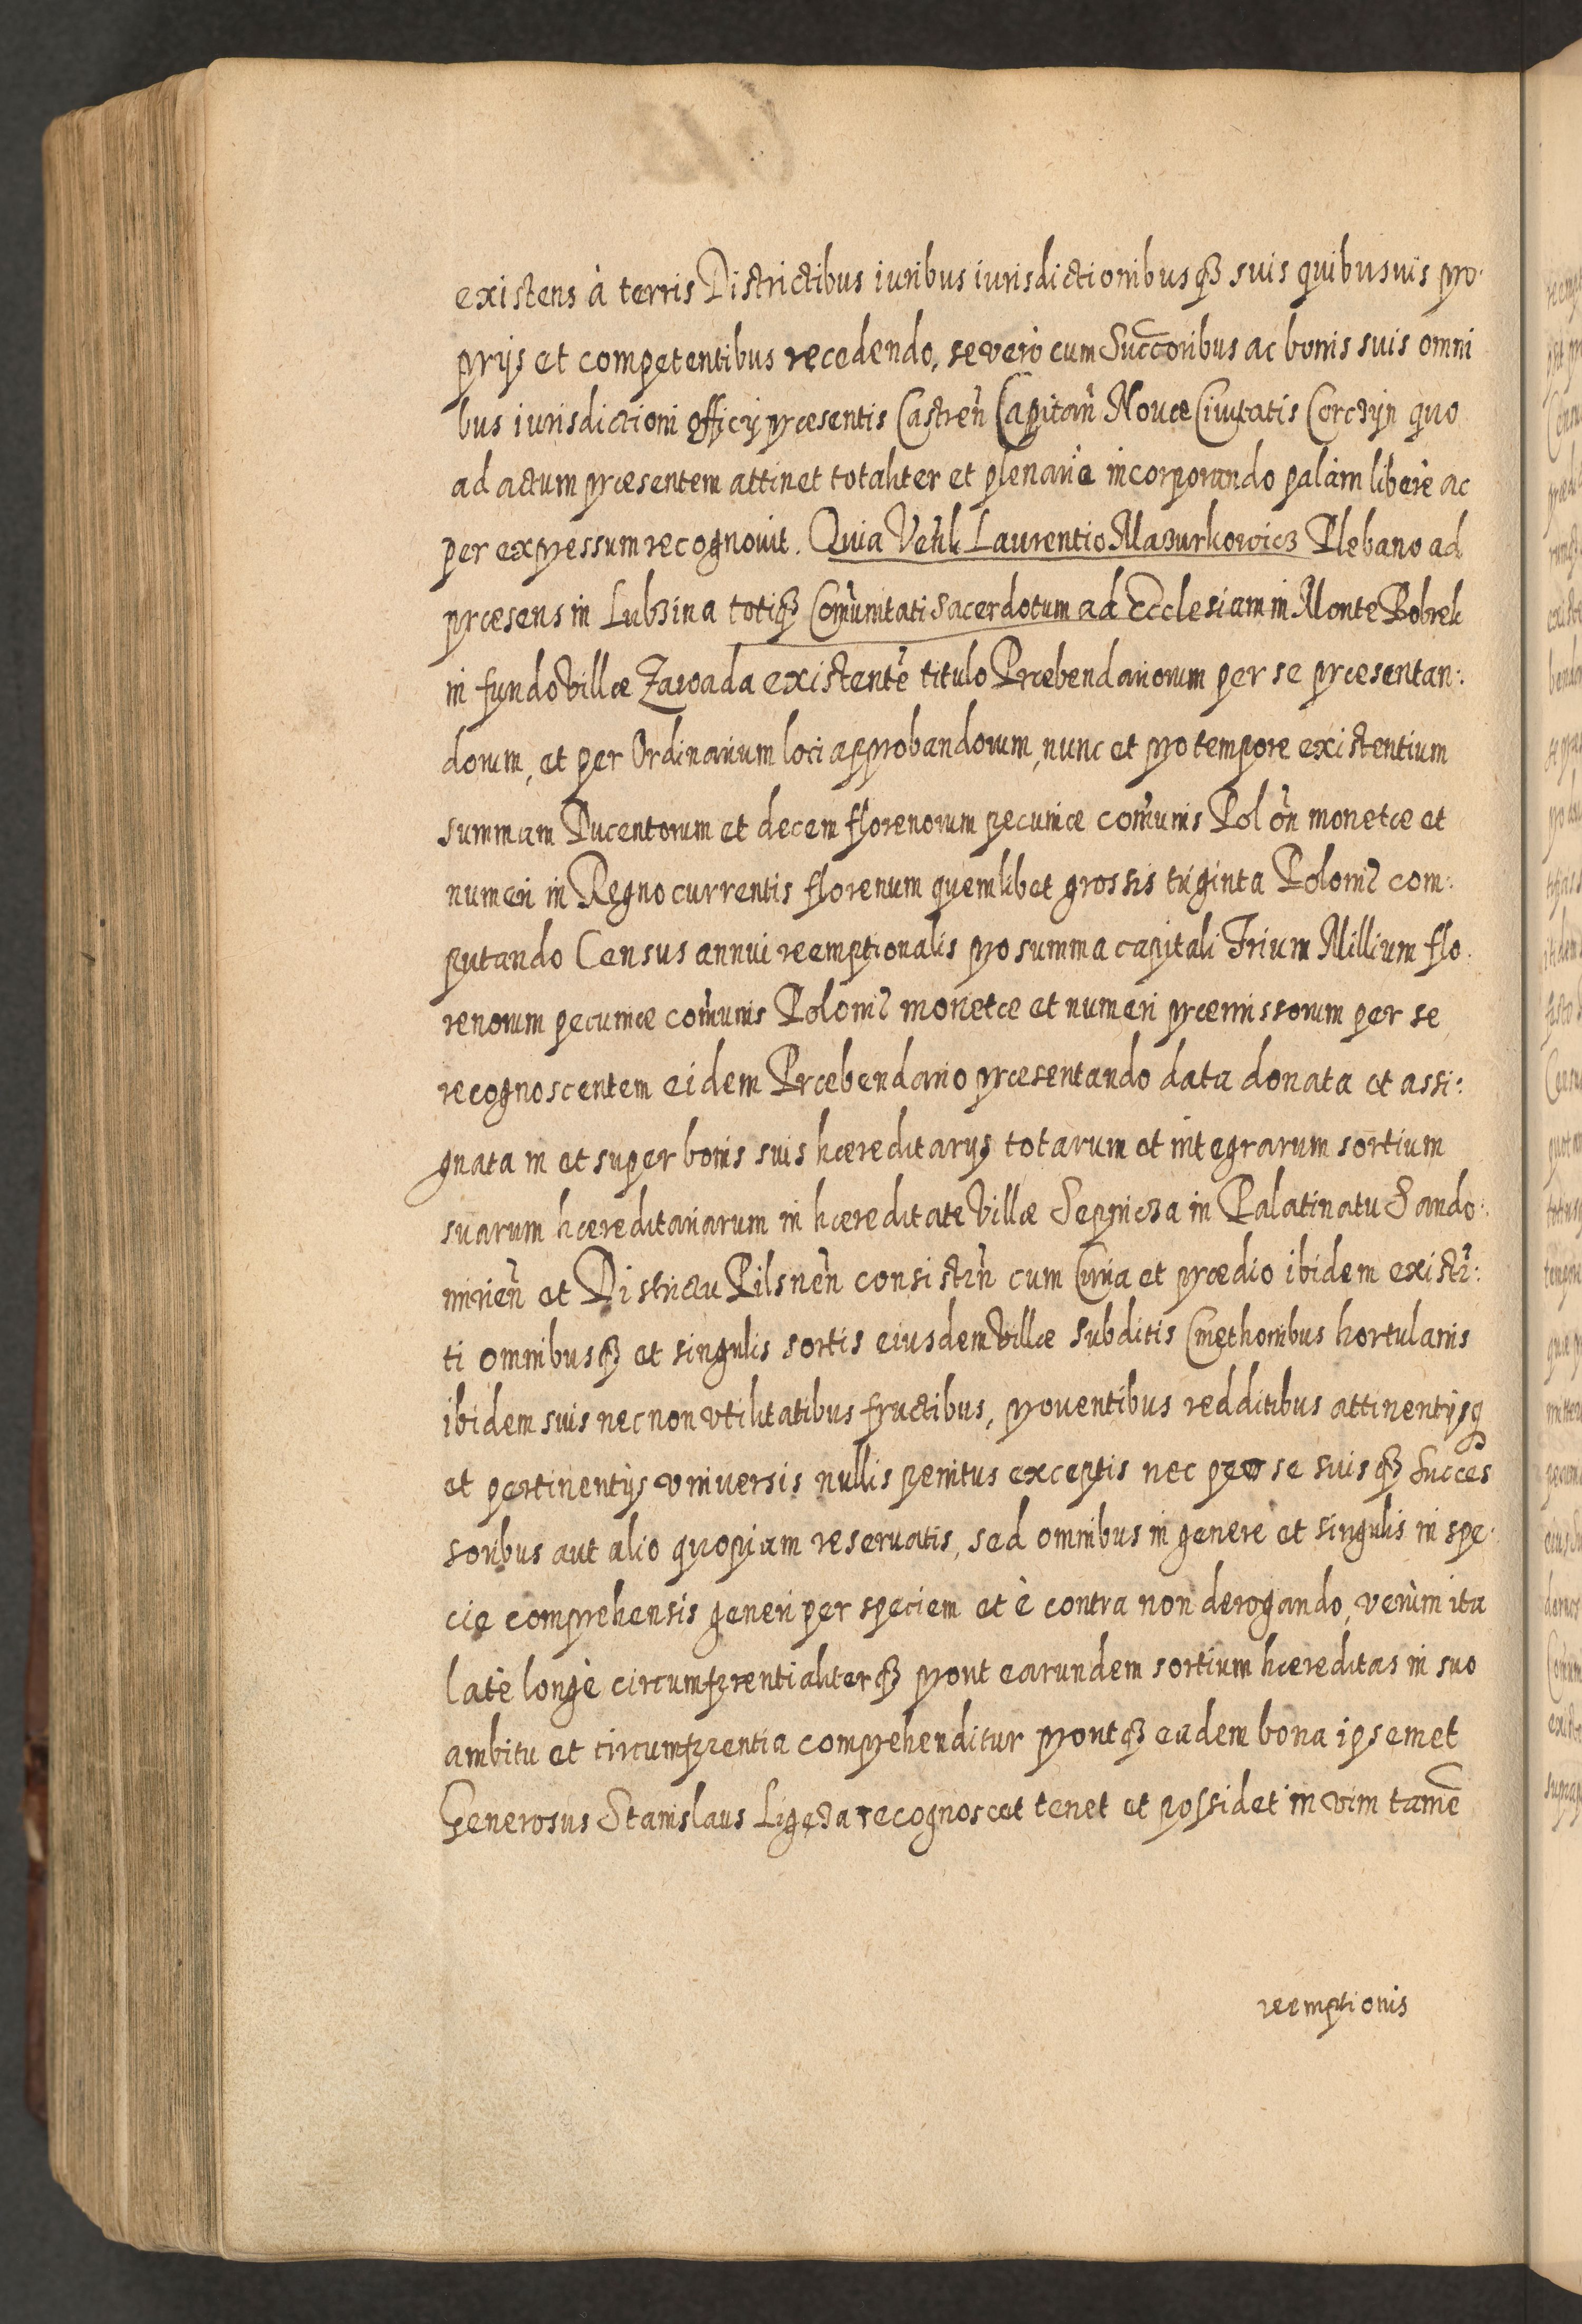 existens à terris Districtibus iuribus iurisdictionibusq3 suis quibusuis pro-
prijs et competentibus recedendo, se verò cum Succoribus ac bonis suis omni
bus iurisdictioni officÿ præsentis Castren̄ Capitan̄ Nouæ Ciuitatis Corczyn quo
ad actum præsentem attinet totaliter et plenariè incorporando palàm liberè ac
per expressum recognouit. Quia Venli Laurentio Mazurkowicz Plebano ad
præsens in Lubzina totiq3 Com̄unitati Sacerdotum ad Ecclesiam in Monte Bobrek
in fundo villæ Zawada existentē titulo Præbendariorum per se præsentan:
dorum, et per Ordinarium loci approbandorum, nunc et pro tempore existentium
summam Ducentorum et decem florenorum pecuniæ com̄unis Polon̄ monetæ et
numeri in Regno currentis florenum quemlibet grossis triginta Polonis com:
putando Census annui reemptionalis pro summa capitali Trium Millium flo.
renorum pecuniæ com̄unis Polonis monetæ et numeri præmissorum per se
recognoscentem eidem Præbendario præsentando data donata et assi:
gnata in et super bonis suis hæreditarijs totarum et integrarum sortium
suarum hæreditariarum in hæreditate villæ Sepnicza in Palatinatu Sando:
mirien̄ et Districtu Pilsnen̄ consisten̄ cum Curia et prædio ibidem existen̄:
ti omnibusq3 et singulis sortis eiusdem villæ subditis Cmethonibus hortulanis
ibidem suis necnon vtilitatibus fructibus, prouentibus redditibus attinentÿsq3
et pertinentÿs vniuersis nullis penitus exceptis nec pro se suisq3 Succes
soribus aut alio quopiam reseruatis, sed omnibus in genere et singulis in spe.
cie comprehensis generi per speciem et è contra non derogando, verùm ita
latè longè circumferentialiterq3 prout earundem sortium hæreditas in suo
ambitu et circumferentia comprehenditur proutq3 eadem bona ipsemet
Generosus Stanislaus Ligęza recognoscet tenet et possidet in vim tamē
reemptionis